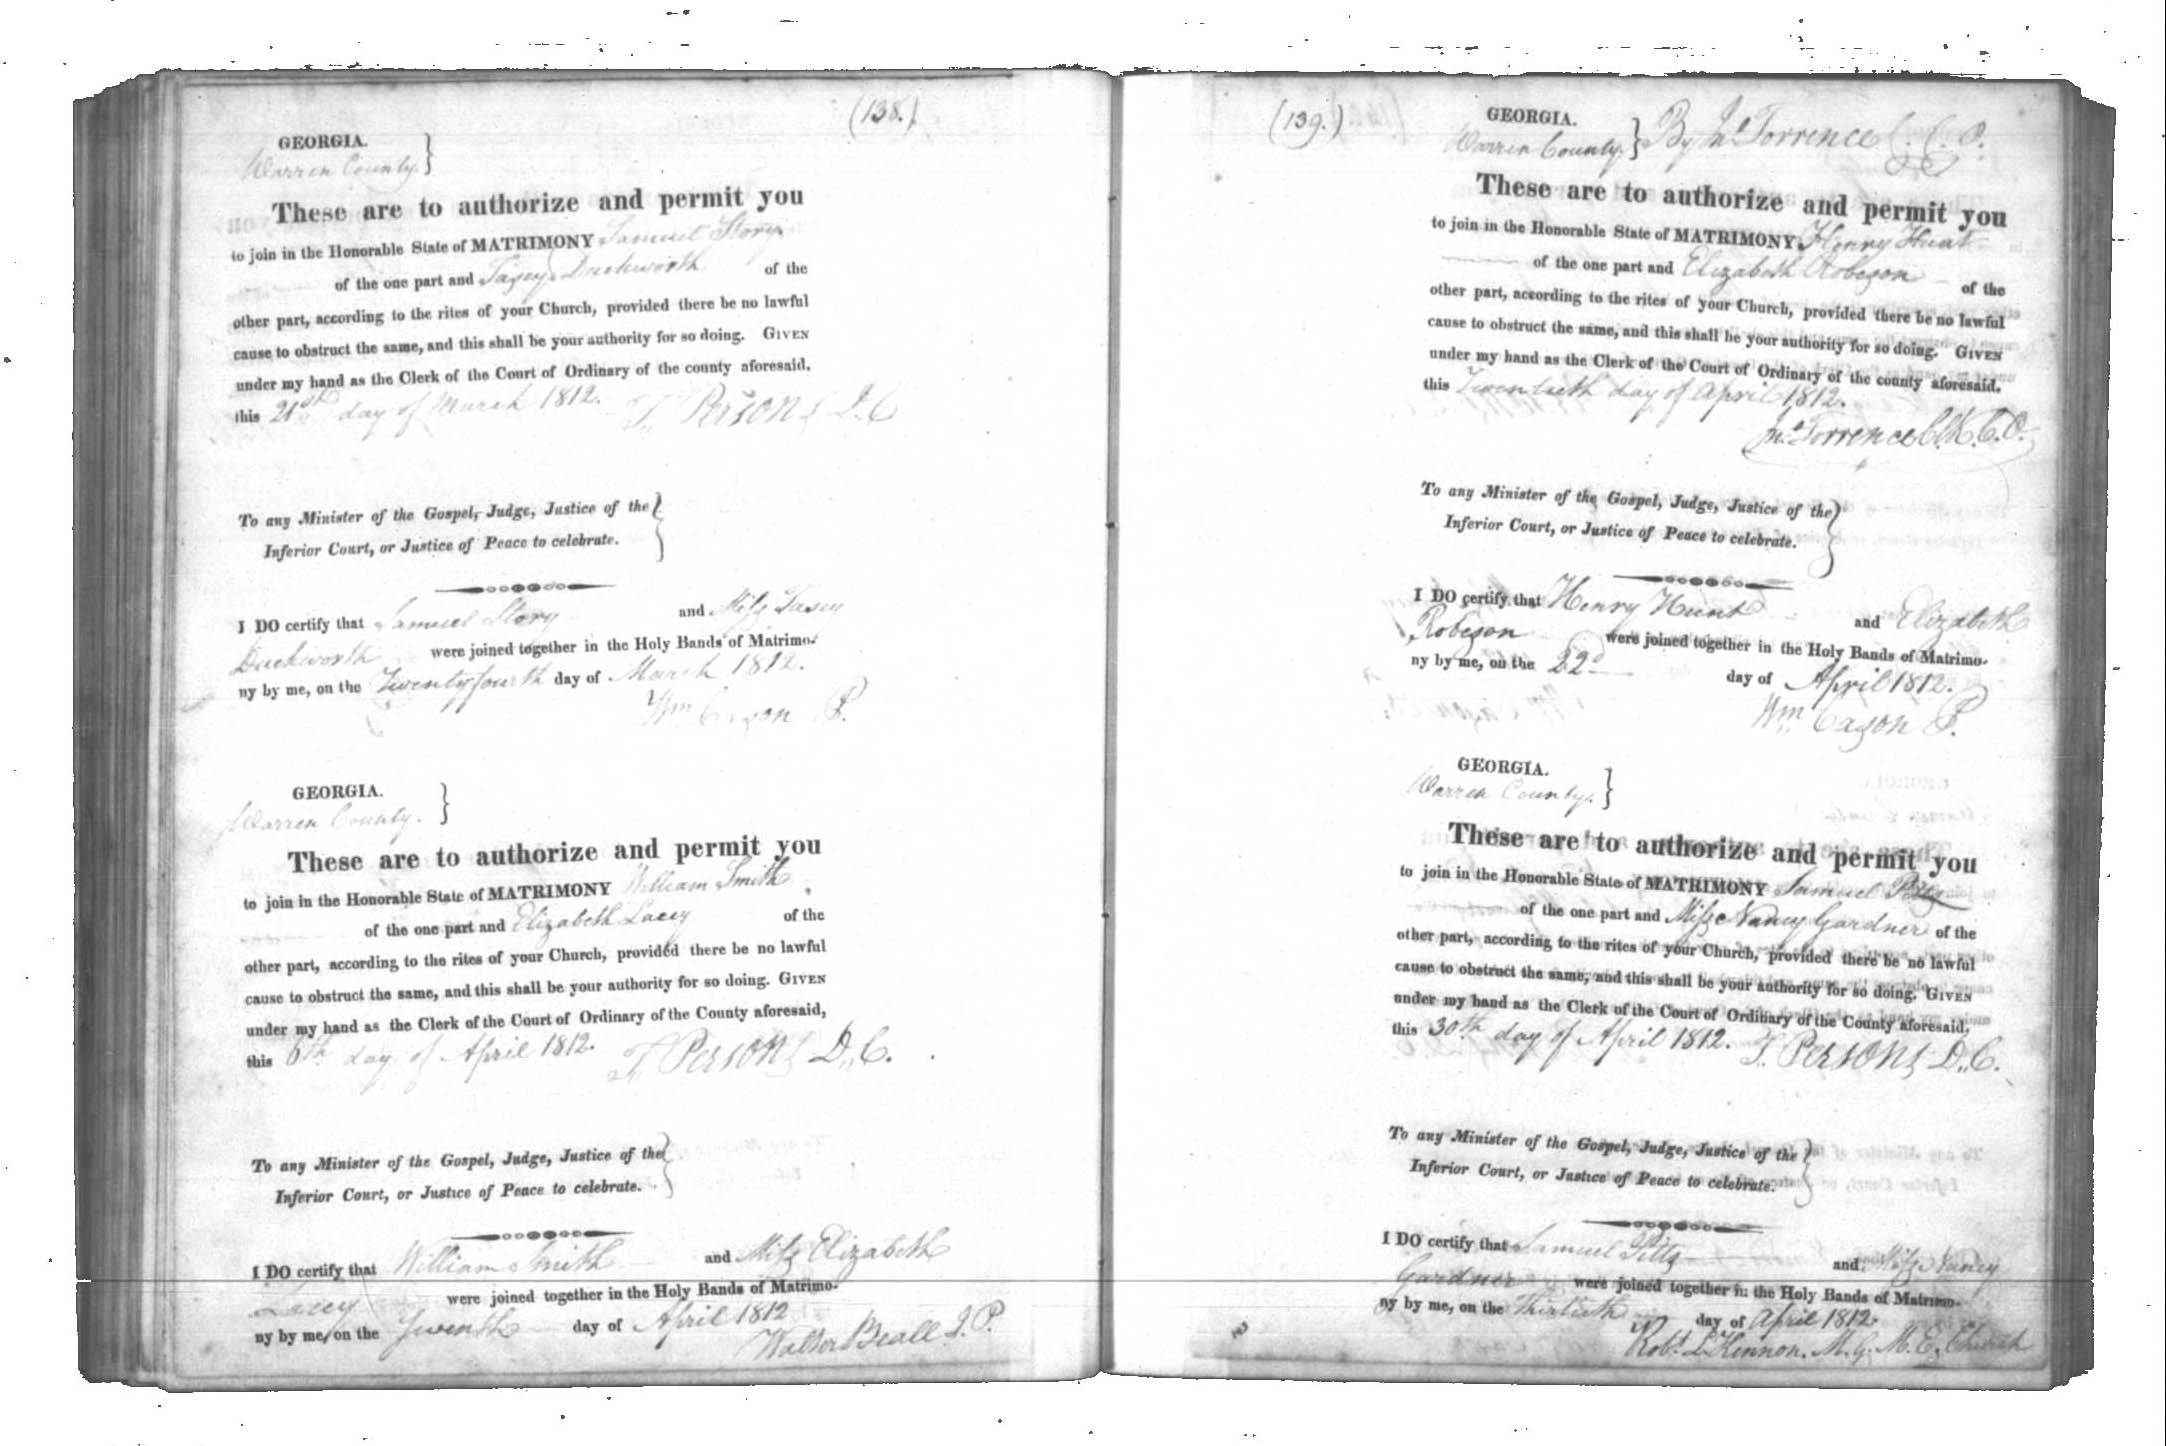 (138.)
GEORGIA.
Warren County. }
These are to authorize and permit you
to join in the Honorable State of MATRIMONY Samuel Story
of the one part and Lasey Duckworth of the
other part, according to the rites of your Church, provided there be no lawful
cause to obstruct the same, and this shall be your authority for so doing. GIVEN
under my hand as the Clerk of the Court of Ordinary of the county aforesaid,
this 21st day of March 1812. T. Persons D.C
To any Minister of the Gospel, Judge, Justice of the }
Inferior Court, or Justice of Peace to celebrate.
I DO certify that Samuel Story and Miss Lasey
Duckworth were joined together in the Holy Bands of Matrimo-
ny by me, on the Twenty fourth day of March 1812.
Wm Cason P.
GEORGIA.
Warren County. }
These are to authorize and permit you
to join in the Honorable State of MATRIMONY William Smith
of the one part and Elizabeth Lacey of the
other part, according to the rites of your Church, provided there be no lawful
cause to obstruct the same, and this shall be your authority for so doing. GIVEN
under my hand as the Clerk of the Court of Ordinary of the County aforesaid,
this 6th day of April 1812. T. Persons D.,C.
To any Minister of the Gospel, Judge, Justice of the }
Inferior Court, or Justice of Peace to celebrate.
I DO certify that William Smith and Miss Elizabeth
Lacey were joined together in the Holy Bands of Matrimo-
ny by me, on the day of April 1812
Walter Beall J.P.
(139.)
GEORGIA.
Warren County. } By Jno Torrence C.C.O.
These are to authorize and permit you
to join in the Honorable State of MATRIMONY Henry Hunt
of the one part and Elizabeth Robeson of the
other part, according to the rites of your Church, provided there be no lawful
cause to obstruct the same, and this shall be your authority for so doing. GIVEN
under my hand as the Clerk of the Court of Ordinary of the county aforesaid,
this Twentieth day of April 1812.
Jno Torrence Clk. C.O.
To any Minister of the Gospel, Judge, Justice of the }
Inferior Court, or Justice of Peace to celebrate.
I DO certify that Henry Hunt and Elizabeth
Robeson were joined together in the Holy Bands of Matrimo-
ny by me, on the 22d day of April 1812.
Wm Cason P.
GEORGIA.
Warren County. }
These are to authorize and permit you
to join in the Honorable State of MATRIMONY Samuel Pitts
of the one part and Miss Nancy Gardner of the
other part, according to the rites of your Church, provided there be no lawful
cause to obstruct the same, and this shall be your authority for so doing. GIVEN
under my hand as the Clerk of the Court of Ordinary of the County aforesaid,
this 30th day of April 1812. T. Persons D.,C.
To any Minister of the Gospel, Judge, Justice of the }
Inferior Court, or Justice of Peace to celebrate.
I DO certify that Samuel Pitts and Miss Nancy
Gardner were joined together in the Holy Bands of Matrimo-
ny by me, on the Thirtieth day of April 1812.
Robt. L. Kennon. M.G. M.E. Church